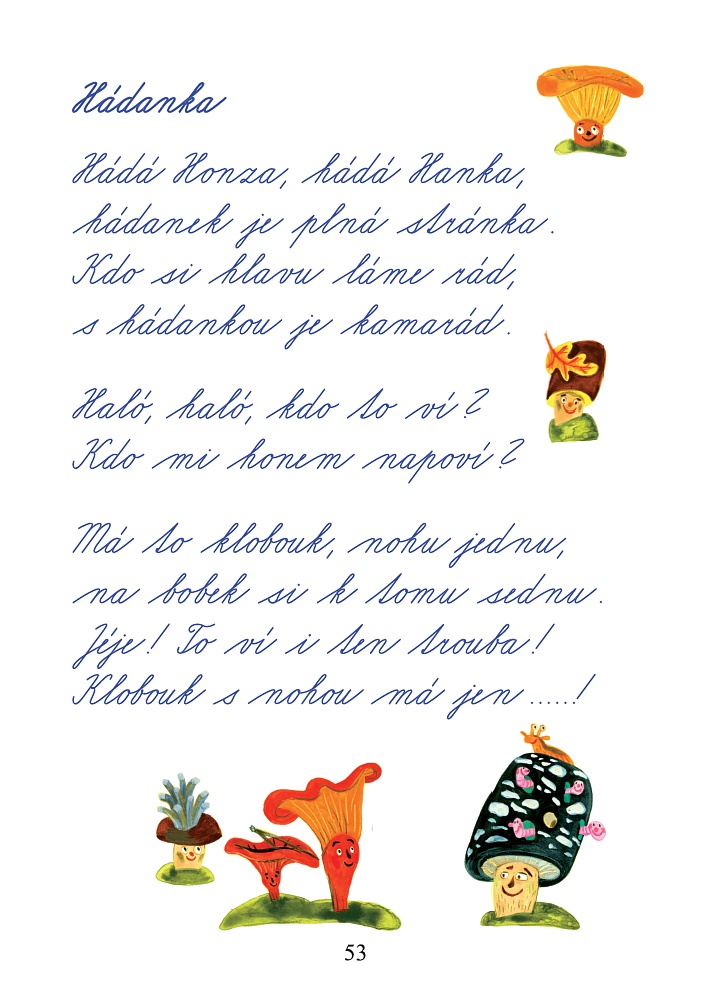 Hádanka
Hádá Honza, hádá Hanka,
hádanek je plná stránka.
Kdo si hlavu láme rád,
s hádankou je kamarád.
Haló, haló, kdo to ví?
Kdo mi honem napoví?
Má to klobouk, nohu jednu,
na bobek si k tomu sednu.
Jéje! To ví i ten trouba!
Klobouk s nohou má jen ......!
53